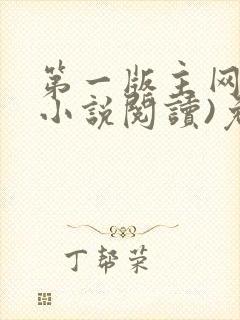 第一版主网
小說閱讀)免
丁帮荣